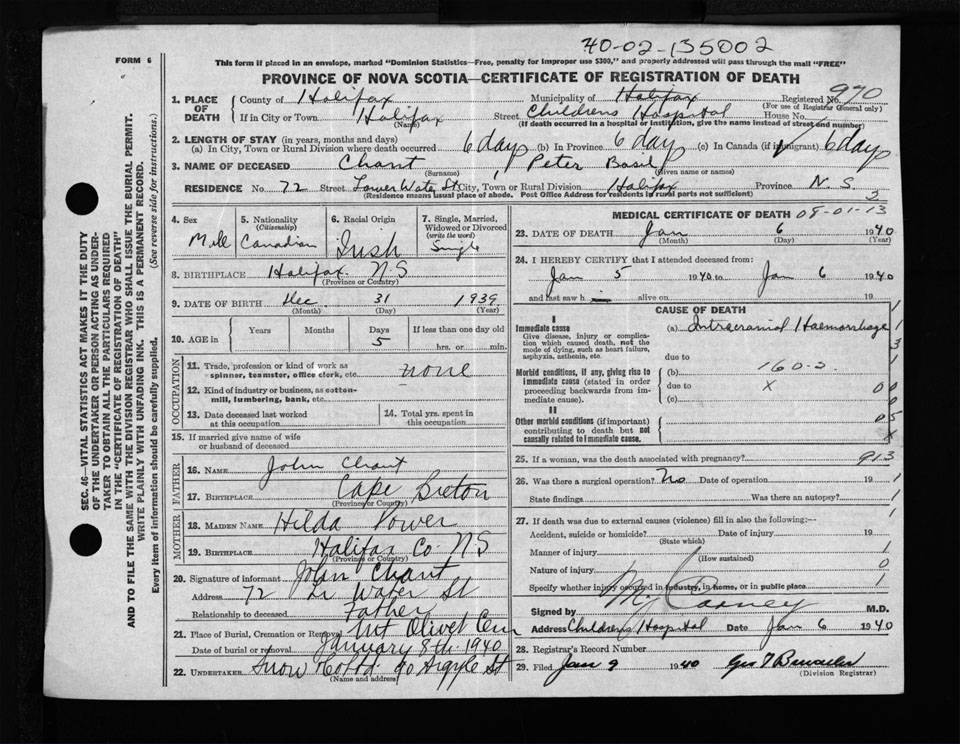 40-02-135002
FORM 6
This form if placed in an envelope, marked "Dominion Statistics—Free, penalty for improper use $300," and properly addressed will pass through the mail "FREE"
PROVINCE OF NOVA SCOTIA—CERTIFICATE OF REGISTRATION OF DEATH
1. PLACE OF DEATH County of Halifax Municipality of Halifax Registered No. 970
(For use of Registrar General only)
If in City or Town Halifax Street Childrens Hospital House No.
(Name) (If death occurred in a hospital or institution, give the name instead of street and number)
2. LENGTH OF STAY (in years, months and days)
(a) In City, Town or Rural Division where death occurred 6 days (b) In Province 6 days (c) In Canada (if immigrant) 6 days
3. NAME OF DECEASED Chant, Peter Basil
(Surname) (Given name or names)
RESIDENCE No 72 Street Lower Water St City, Town or Rural Division Halifax Province N.S.
(Residence means usual place of abode. Post Office Address for residents in rural parts not sufficient)
SEC. 46—VITAL STATISTICS ACT MAKES IT THE DUTY
OF THE UNDERTAKER OR PERSON ACTING AS UNDER-
TAKER TO OBTAIN ALL THE PARTICULARS REQUIRED
IN THE "CERTIFICATE OF REGISTRATION OF DEATH"
AND TO FILE THE SAME WITH THE DIVISION REGISTRAR WHO SHALL ISSUE THE BURIAL PERMIT.
WRITE PLAINLY WITH UNFADING INK. THIS IS A PERMANENT RECORD.
Every item of information should be carefully supplied. (See reverse side for instructions.)
4. Sex Male
5. Nationality (Citizenship) Canadian
6. Racial Origin Irish
7. Single, Married, Widowed or Divorced (write the word) Single
8. BIRTHPLACE Halifax NS
(Province or Country)
9. DATE OF BIRTH Dec 31 1939
(Month) (Day) (Year)
10. AGE in Years Months Days 5 If less than one day old hrs. or min.
OCCUPATION
11. Trade, profession or kind of work as spinner, teamster, office clerk, etc. none
12. Kind of industry or business, as cotton-mill, lumbering, bank, etc.
13. Date deceased last worked at this occupation
14. Total yrs. spent in this occupation
15. If married give name of wife or husband of deceased
FATHER
16. NAME John Chant
17. BIRTHPLACE Cape Breton
(Province or Country)
MOTHER
18. MAIDEN NAME Hilda Power
19. BIRTHPLACE Halifax Co NS
(Province or Country)
20. Signature of informant John Chant
Address 72 Lr Water St
Relationship to deceased Father
21. Place of Burial, Cremation or Removal Mt Olivet Cem
Date of burial or removal January 8th 1940
22. UNDERTAKER Snow Co Ltd 90 Argyle St
(Name and address)
MEDICAL CERTIFICATE OF DEATH 09-01-13
3
23. DATE OF DEATH Jan 6 1940
(Month) (Day) (Year)
24. I HEREBY CERTIFY that I attended deceased from:
Jan 5 1940 to Jan 6 1940
and last saw h alive on 19
CAUSE OF DEATH
I
Immediate cause
Give disease, injury or complication which caused death, not the mode of dying, such as heart failure, asphyxia, asthenia, etc.
(a) Intracranial Haemorrhage
due to
Morbid conditions, if any, giving rise to immediate cause (stated in order proceeding backwards from immediate cause).
(b) 160-2.
due to X
(c)
II
Other morbid conditions (if important) contributing to death but not causally related to immediate cause.
1
1
3
1
0 0
0 5
X
25. If a woman, was the death associated with pregnancy? 913
26. Was there a surgical operation? No Date of operation 19 1
State findings Was there an autopsy? 1
27. If death was due to external causes (violence) fill in also the following:—
Accident, suicide or homicide? Date of injury 19
(State which)
Manner of injury 1
(How sustained)
Nature of injury 0
Specify whether injury occurred in industry, in home, or in public place 1
Signed by M.D.
Address Childrens Hospital Date Jan 6 1940
28. Registrar's Record Number
29. Filed Jan 9 1940
(Division Registrar)